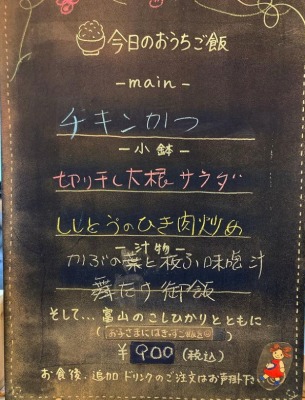 今日のおうちご飯
-main-
チキンかつ
-小鉢-
切り干し大根サラダ
ししとうのひき肉炒め
-汁物-
かぶの葉と板ふ味噌汁
舞たけ御飯
そして…富山のこしひかりとともに
(お子さまにはきっずご飯も)
¥900(税込)
お食後、追加ドリンクのご注文はお声掛け下さい